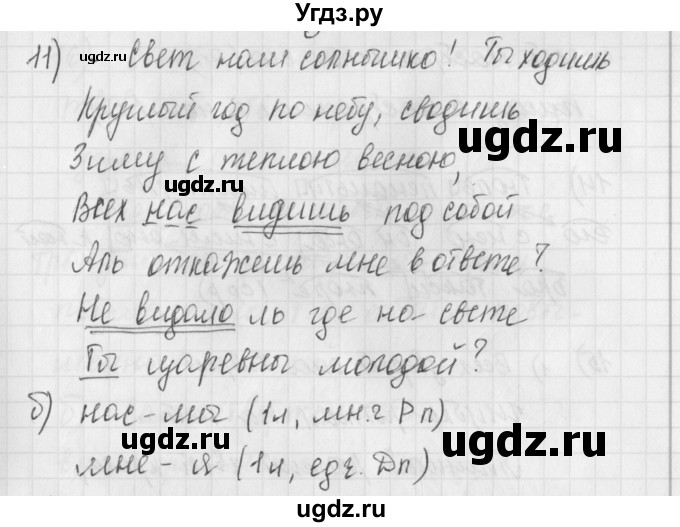 Угдз.ру
11) Свет наш солнышко! Ты ходишь
Круглый год по небу, сводишь
Зиму с теплою весною,
Всех нас видишь под собой
Аль откажешь мне в ответе?
Не видало ль где на свете
Ты царевны молодой?
б) нас - мы (1л, мн.ч Рп)
мне - я (1л, ед.ч. Дп)
ugdz.ru
ugdz.ru
ugdz.ru
ugdz.ru
ugdz.ru
ugdz.ru
ugdz.ru
ugdz.ru
ugdz.ru
Угдз.ру